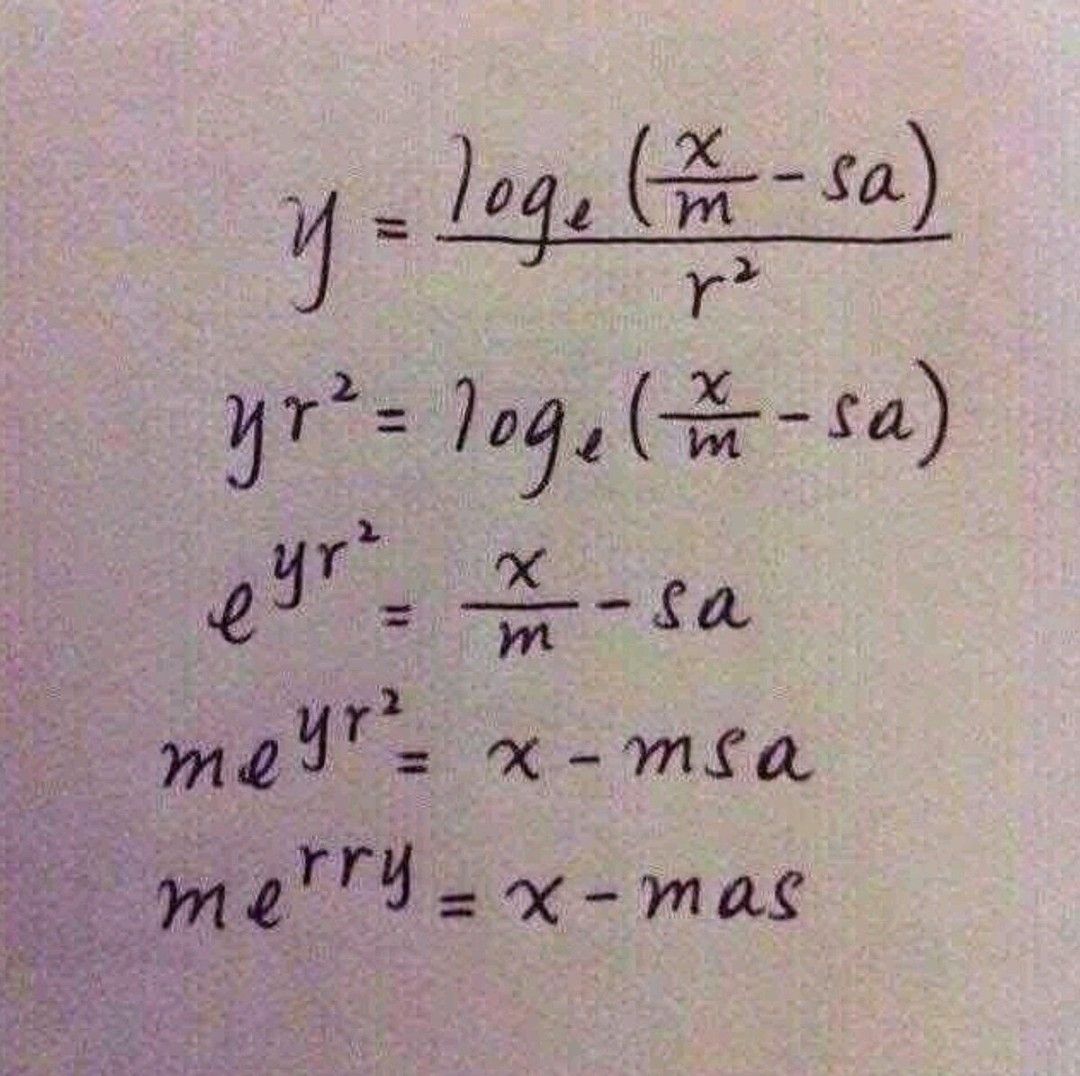 y = logₑ (x/m - sa) / r²
yr² = logₑ (x/m - sa)
e^(yr²) = x/m - sa
me^(yr²) = x - msa
me^(rry) = x - mas